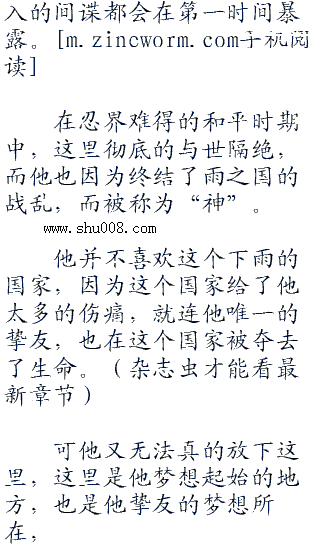 入的间谍都会在第一时间暴
露。[m.zincworm.com手机阅
读]
在忍界难得的和平时期
中，这里彻底的与世隔绝，
而他也因为终结了雨之国的
战乱，而被称为“神”。
www.shu008.com
他并不喜欢这个下雨的
国家，因为这个国家给了他
太多的伤痛，就连他唯一的
挚友，也在这个国家被夺去
了生命。（杂志虫才能看最
新章节）
可他又无法真的放下这
里，这里是他梦想起始的地
方，也是他挚友的梦想所
在，